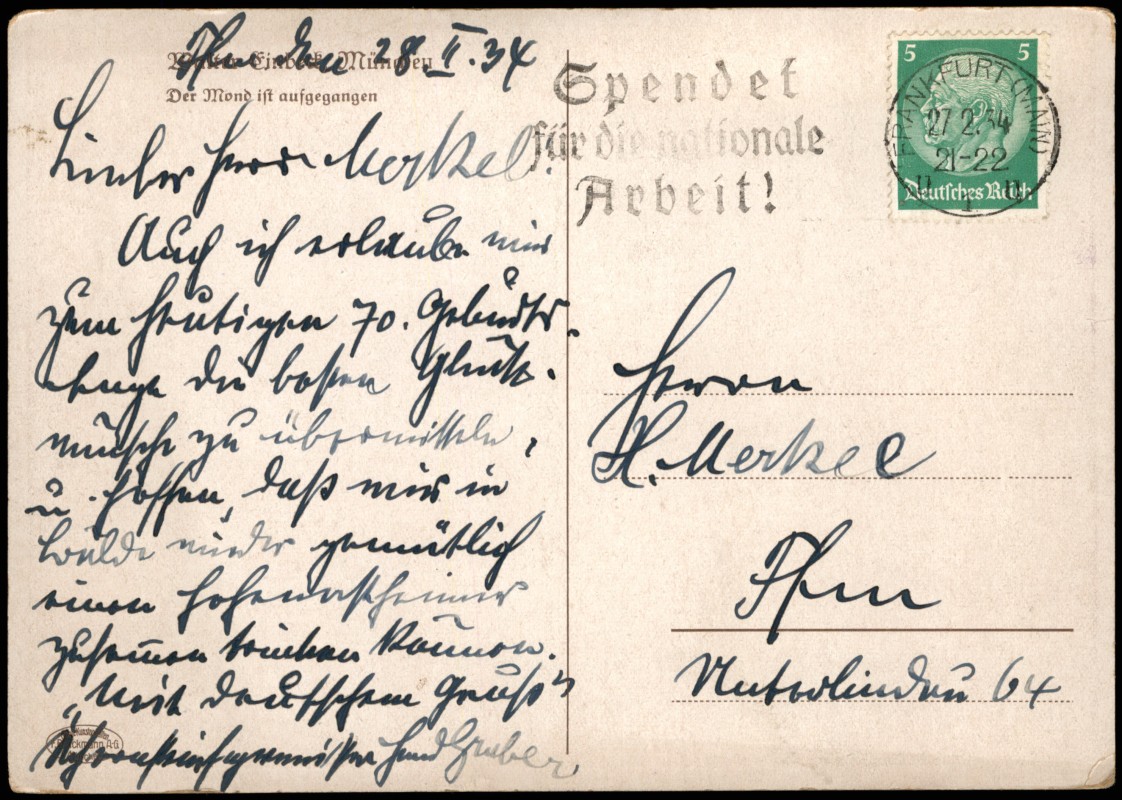 Ffm den 28 II. 34
Walter Einbeck, München
Der Mond ist aufgegangen
Lieber Herr Merkel!
Auch ich erlaube mir
zum heutigen 70. Geburts-
tage die besten Glück-
wünsche zu übermitteln,
u. hoffen, daß wir in
Bälde wieder gemütlich
einen Hohenastheimer
zusammen trinken können.
"Mit deutschem Gruß"
Schornsteinfegermeister Gruber
Spendet
für die nationale
Arbeit!
5 5
FRANKFURT (MAIN)
27.2.34
21-22
Deutsches Reich
Herrn
H. Merkel
Ffm
Unterlindau 64